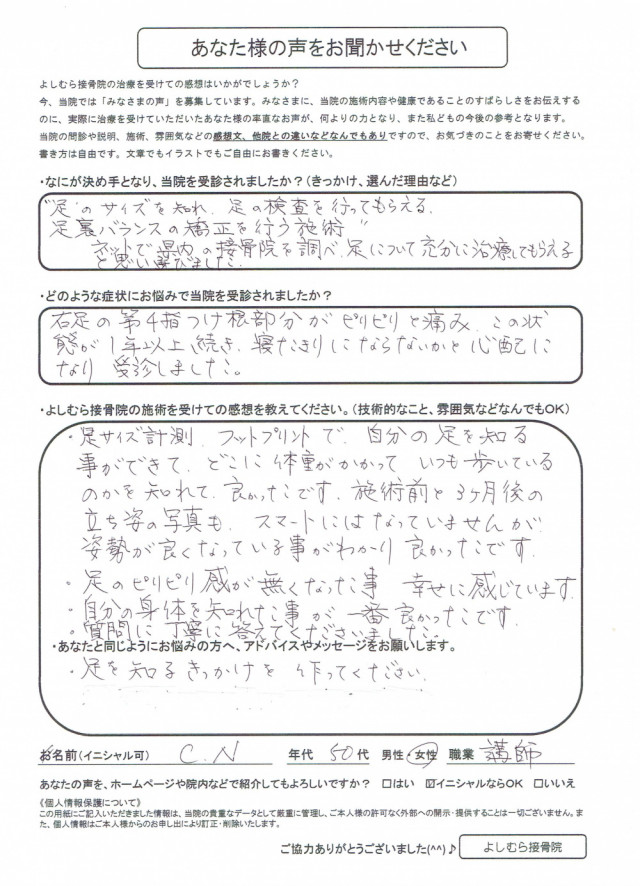 あなた様の声をお聞かせください
よしむら接骨院の治療を受けての感想はいかがでしょうか?
今、当院では「みなさまの声」を募集しています。みなさまに、当院の施術内容や健康であることのすばらしさをお伝えする
のに、実際に治療を受けていただいたあなた様の率直なお声が、何よりの力となり、また私どもの今後の参考となります。
当院の問診や説明、施術、雰囲気などの感想文、他院との違いなどなんでもありですので、お気づきのことをお寄せください。
書き方は自由です。文章でもイラストでもご自由にお書きください。
・なにが決め手となり、当院を受診されましたか?(きっかけ、選んだ理由など)
"足"のサイズを知れ、足の検査を行ってもらえる、
足裏バランスの矯正を行う施術"
ネットで県内の接骨院を調べ、足について充分に治療してもらえる
と思い選びました。
・どのような症状にお悩みで当院を受診されましたか?
右足の第4指つけ根部分がピリピリと痛み、この状
態が1年以上続き、寝たきりにならないかと心配に
なり受診しました。
・よしむら接骨院の施術を受けての感想を教えてください。(技術的なこと、雰囲気などなんでもOK)
・足サイズ計測、フットプリントで、自分の足を知る
事ができて、どこに体重がかかって いつも歩いている
のかを知れて、良かったです。施術前と3ヶ月後の
立ち姿の写真も、スマートにはなっていませんが
姿勢が良くなっている事がわかり 良かったです。
・足のピリピリ感が無くなった事 幸せに感じています。
・自分の身体を知れた事が一番良かったです。
・質問に丁寧に答えてくださいました。
・あなたと同じようにお悩みの方へ、アドバイスやメッセージをお願いします。
・足を知るきっかけを作ってください。
お名前(イニシャル可) C.N 年代 50代 男性・女性 職業 講師
あなたの声を、ホームページや院内などで紹介してもよろしいですか? □はい ☑イニシャルならOK □いいえ
《個人情報保護について》
この用紙にご記入いただきました情報は、当院の貴重なデータとして厳重に管理し、ご本人様の許可なく外部への開示・提供することは一切ございません。ま
た、個人情報はご本人様からのお申し出により訂正・削除いたします。
ご協力ありがとうございました(^^)♪ よしむら接骨院